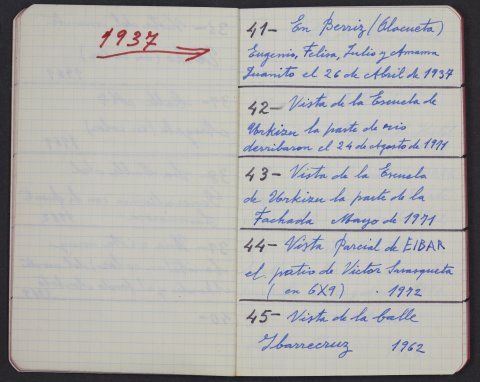 1937
41- En Berriz (Olacueta)
Eugenio, Felisa, Julio y Amama
Juanito el 26 de Abril de 1937
42- Vista de la Escuela de
Urkizu la parte de rio
derribaron el 24 de Agosto de 1971
43- Vista de la Escuela
de Urkizu la parte de la
Fachada Mayo de 1971
44- Vista Parcial de EIBAR
el patio de Victor Sarasqueta
( en 6X9) . 1972
45- Vista de la Calle
Ybarrecruz 1962